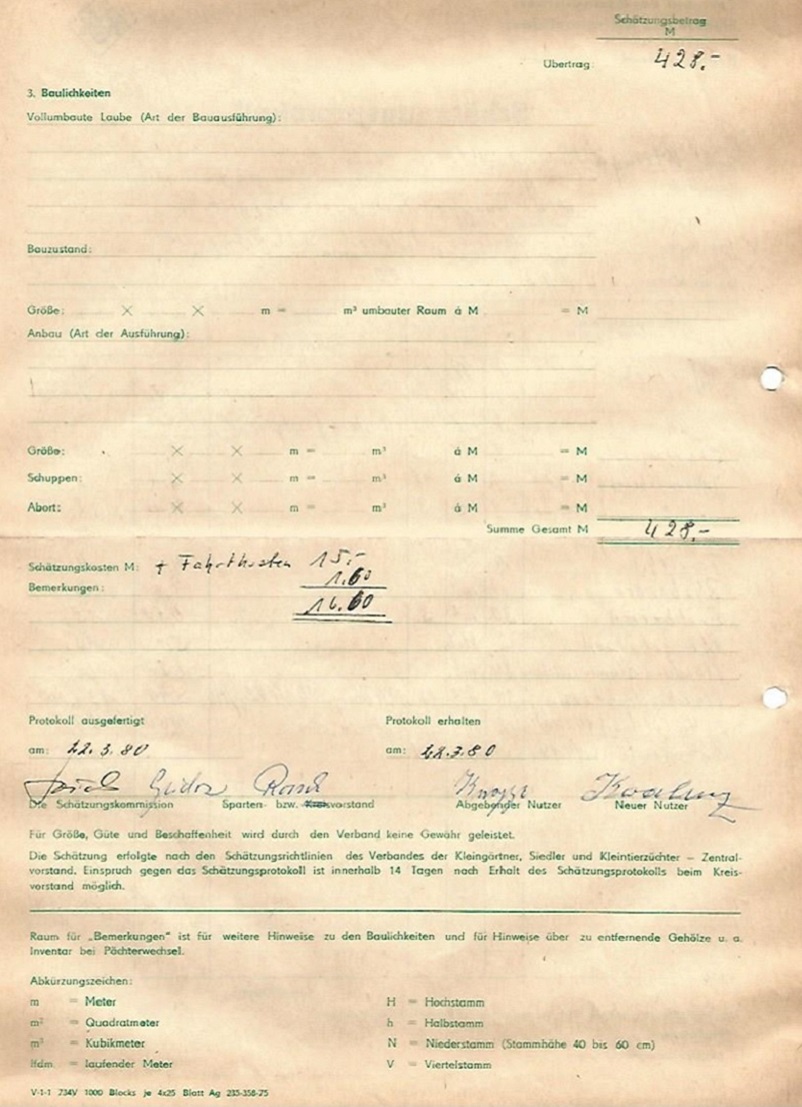 Schätzungsbetrag
M
Übertrag: 428,-
3. Baulichkeiten
Vollumbaute Laube (Art der Bauausführung):
Bauzustand:
Größe: × × m = m³ umbauter Raum á M = M
Anbau (Art der Ausführung):
Größe: × × m = m³ á M = M
Schuppen: × × m = m³ á M = M
Abort: × × m = m³ á M = M
Summe Gesamt M 428,-
Schätzungskosten M: + Fahrtkosten 15,-
1.60
Bemerkungen:
16.60
Protokoll ausgefertigt Protokoll erhalten
am: 22.3.80 am: 22.3.80
Die Schätzungskommission Sparten- bzw. Kreisvorstand Abgebender Nutzer Neuer Nutzer
Für Größe, Güte und Beschaffenheit wird durch den Verband keine Gewähr geleistet.
Die Schätzung erfolgte nach den Schätzungsrichtlinien des Verbandes der Kleingärtner, Siedler und Kleintierzüchter – Zentral-
vorstand. Einspruch gegen das Schätzungsprotokoll ist innerhalb 14 Tagen nach Erhalt des Schätzungsprotokolls beim Kreis-
vorstand möglich.
Raum für „Bemerkungen" ist für weitere Hinweise zu den Baulichkeiten und für Hinweise über zu entfernende Gehölze u. a.
Inventar bei Pächterwechsel.
Abkürzungszeichen:
m = Meter H = Hochstamm
m² = Quadratmeter h = Halbstamm
m³ = Kubikmeter N = Niederstamm (Stammhöhe 40 bis 60 cm)
lfdm. = laufender Meter V = Viertelstamm
V-1-1 734V 1000 Blocks je 4x25 Blatt Ag 235-358-75